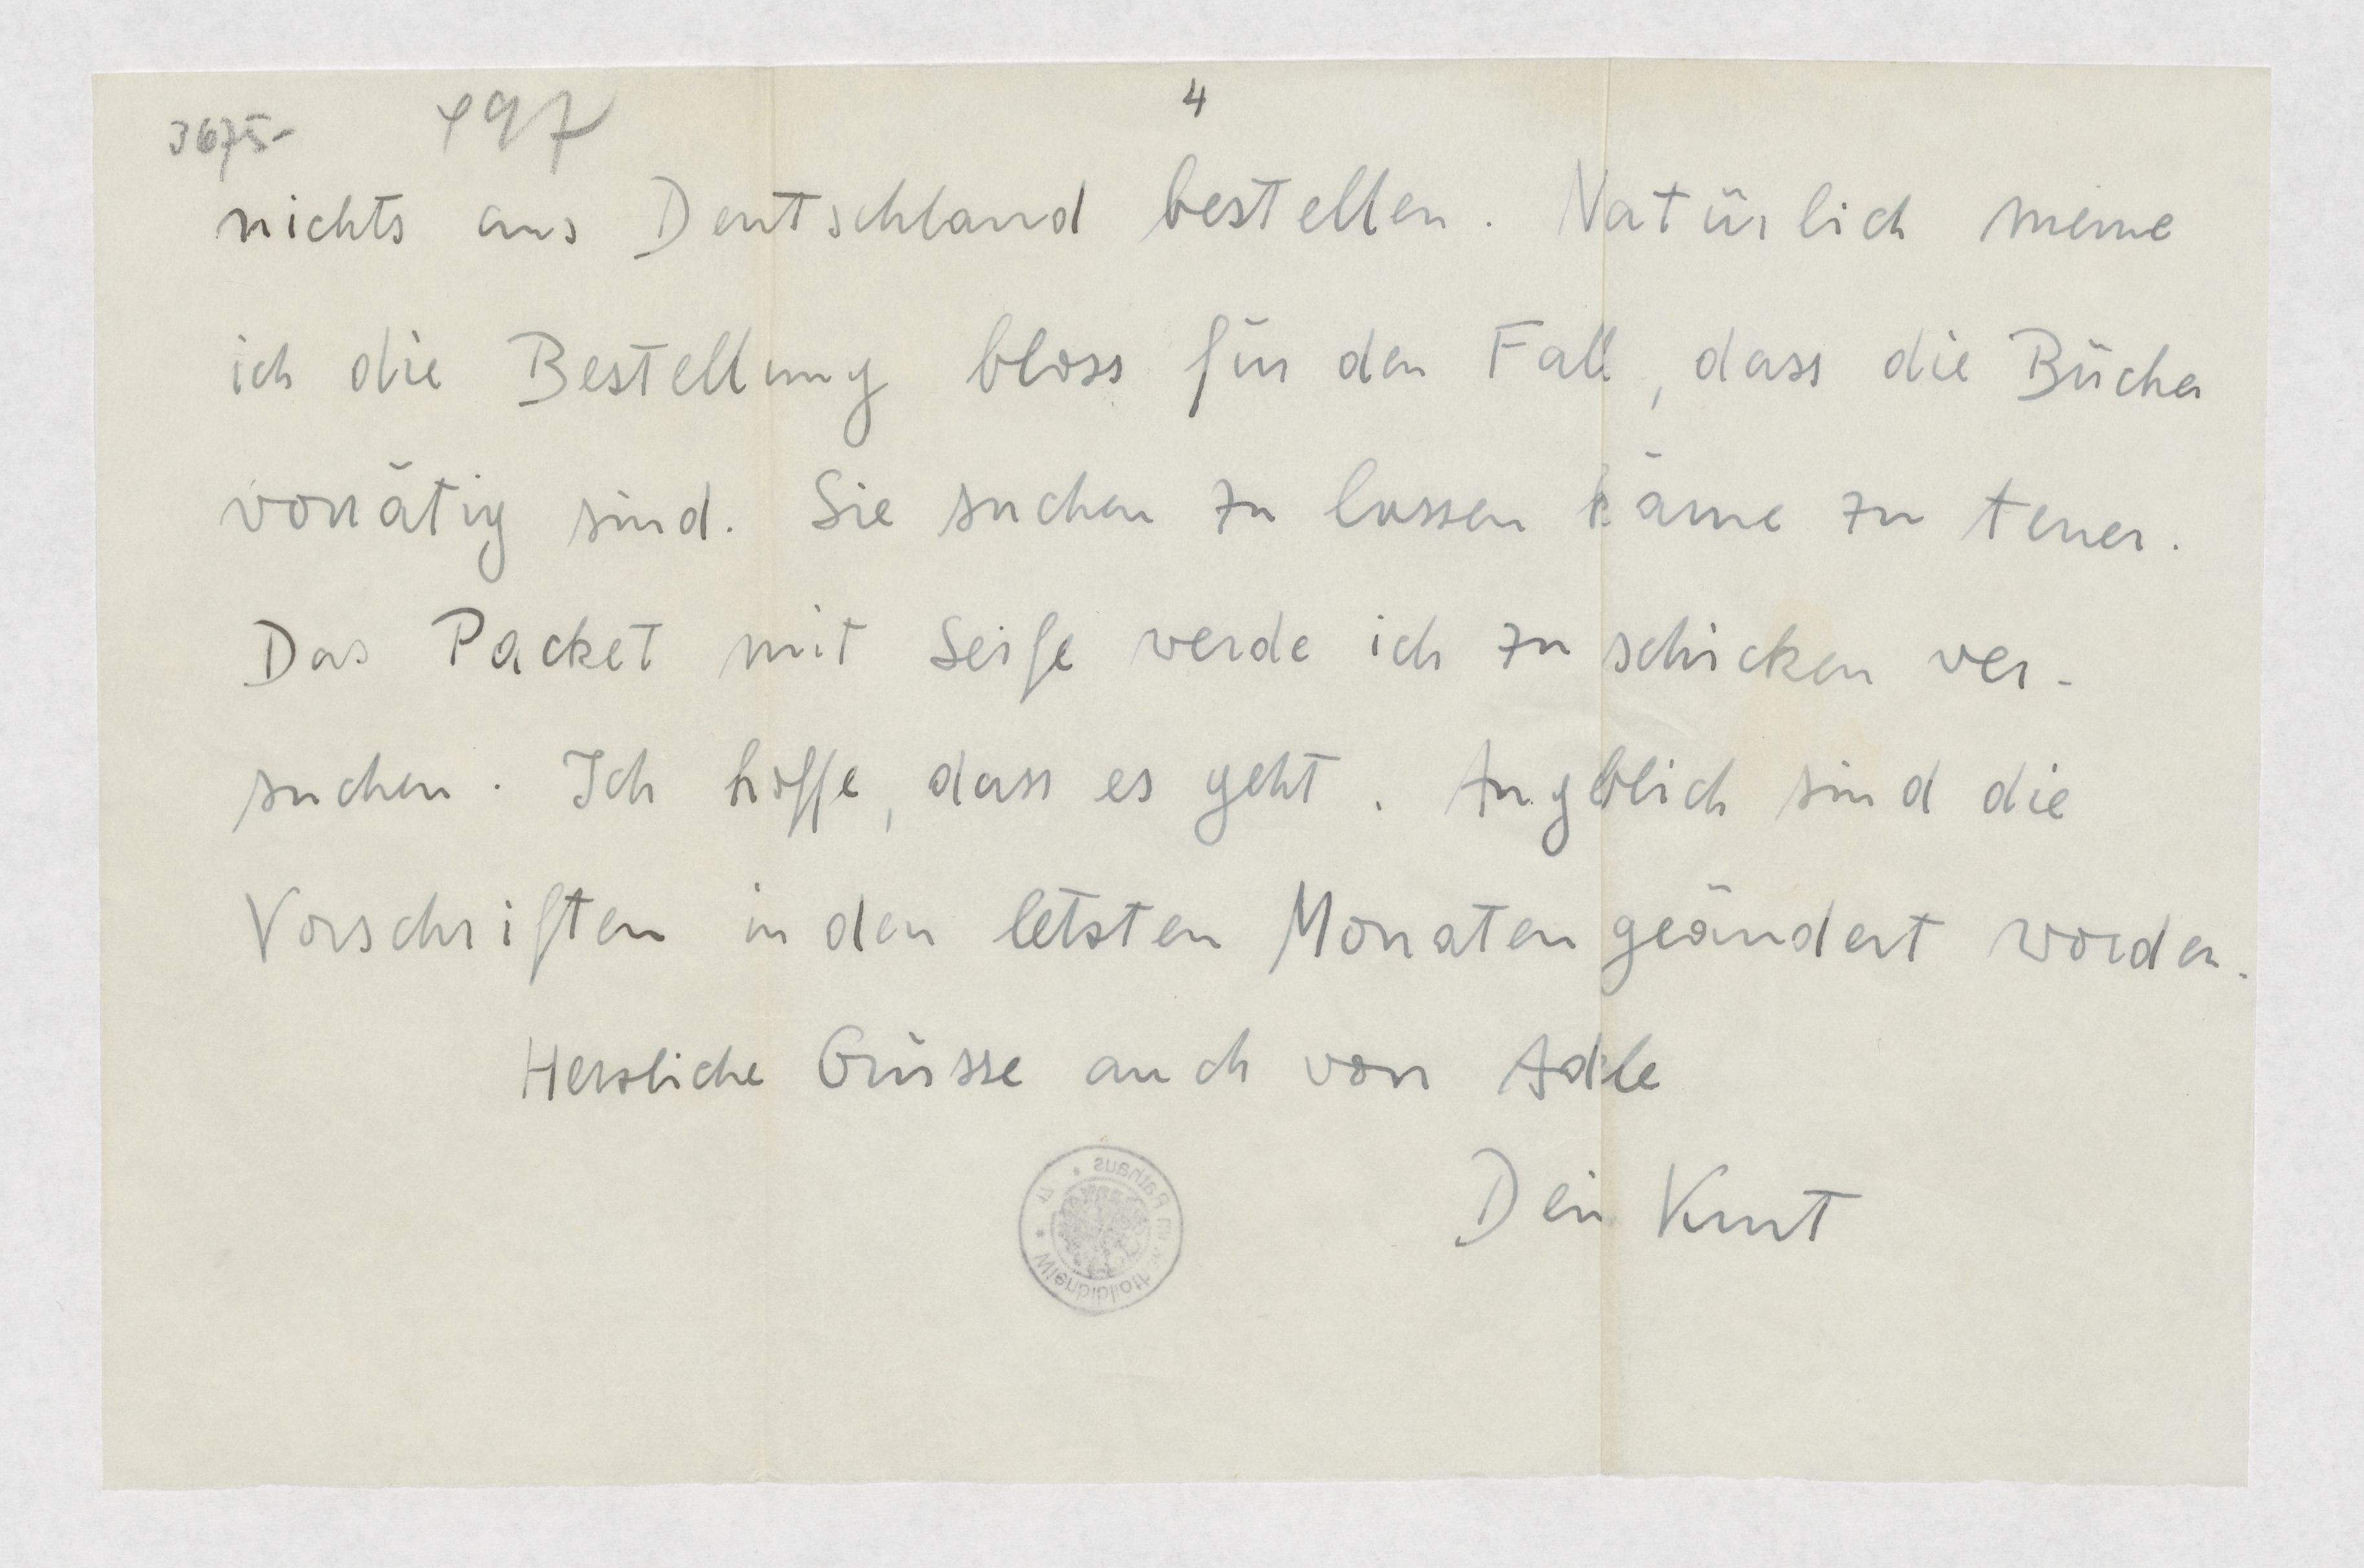 3675-
197
4
nichts aus Deutschland bestellen. Natürlich meine
ich die Bestellung bloss für den Fall, dass die Bücher
vorrätig sind. Sie suchen zu lassen käme zu teuer.
Das Packet mit Seife werde ich zu schicken ver-
suchen. Ich hoffe, dass es geht. Angeblich sind die
Vorschriften in den letzten Monaten geändert worden.
Herzliche Grüsse auch von Adele
Dein Kurt
Wienbibliothek im Rathaus